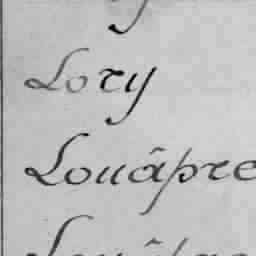 Lory
Louâpre